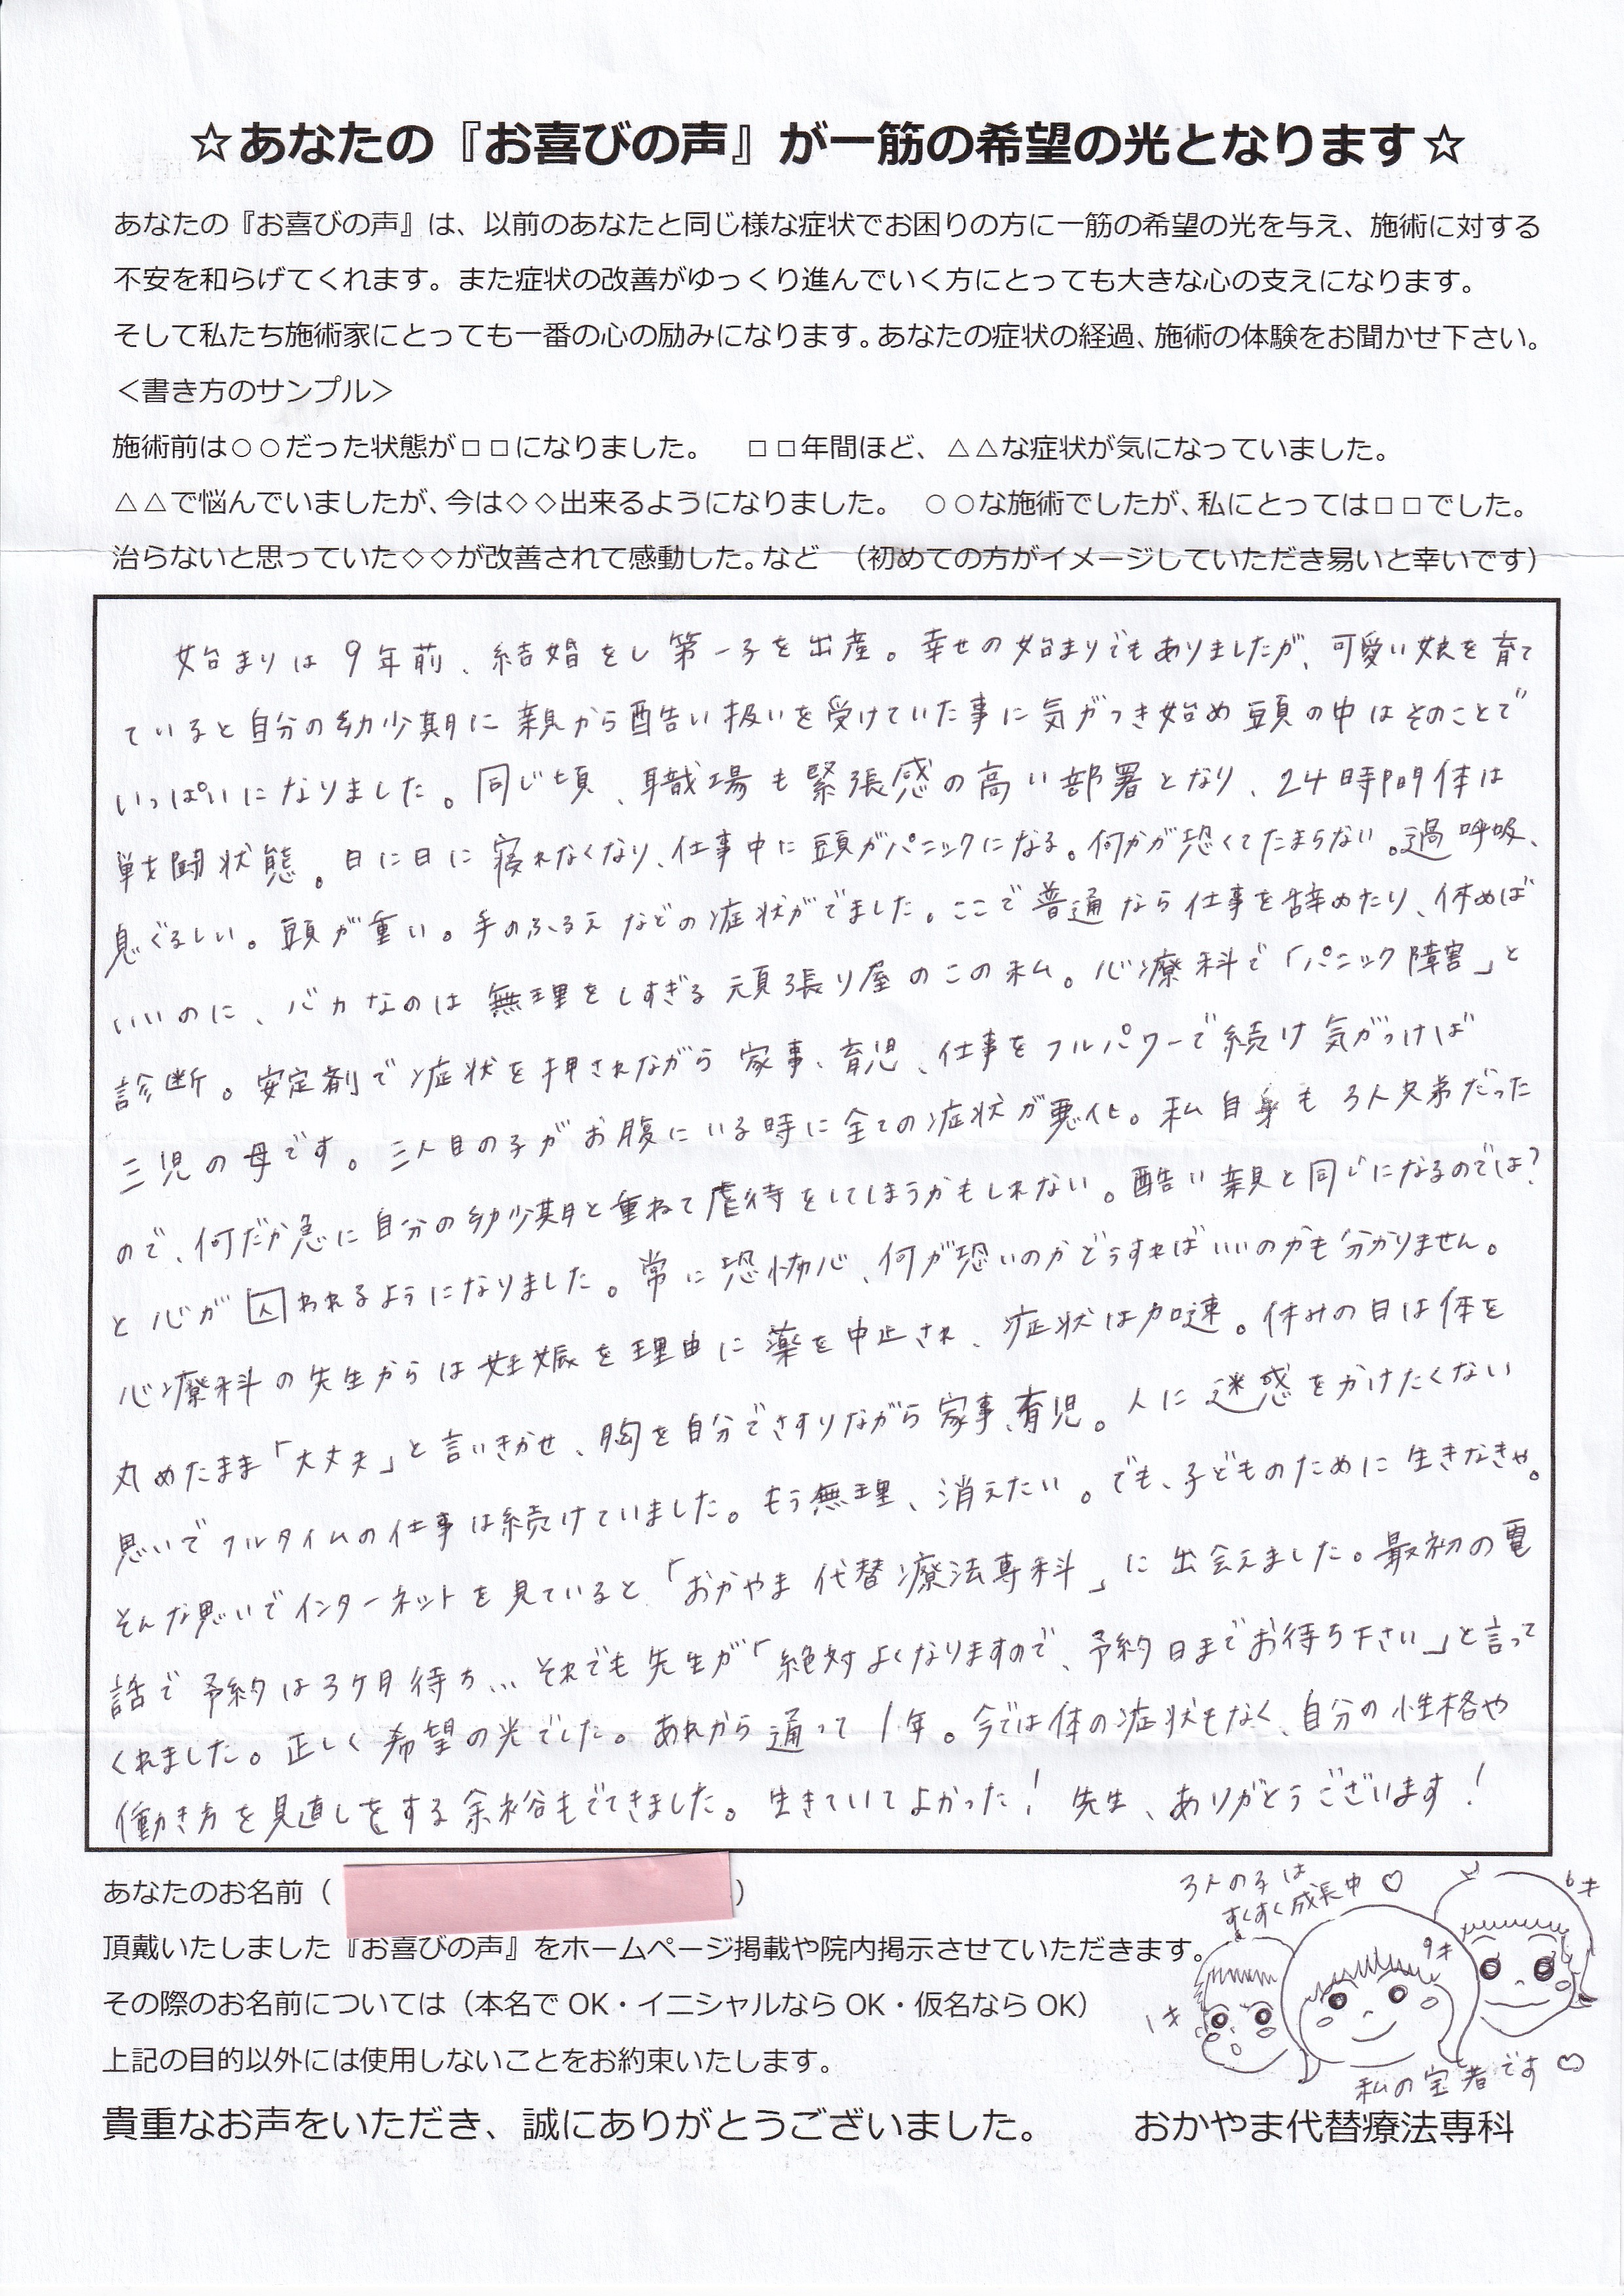 ☆あなたの『お喜びの声』が一筋の希望の光となります☆
あなたの『お喜びの声』は、以前のあなたと同じ様な症状でお困りの方に一筋の希望の光を与え、施術に対する
不安を和らげてくれます。また症状の改善がゆっくり進んでいく方にとっても大きな心の支えになります。
そして私たち施術家にとっても一番の心の励みになります。あなたの症状の経過、施術の体験をお聞かせ下さい。
＜書き方のサンプル＞
施術前は○○だった状態が□□になりました。　□□年間ほど、△△な症状が気になっていました。
△△で悩んでいましたが、今は◇◇出来るようになりました。　○○な施術でしたが、私にとっては□□でした。
治らないと思っていた◇◇が改善されて感動した。など　（初めての方がイメージしていただき易いと幸いです）
始まりは9年前、結婚をし第一子を出産。幸せの始まりでもありましたが、可愛い娘を育て
ていると自分の幼少期に親から酷い扱いを受けていた事に気がつき始め頭の中はそのことで
いっぱいになりました。同じ頃、職場も緊張感の高い部署となり、24時間体は
戦闘状態。日に日に寝れなくなり、仕事中に頭がパニックになる。何かが恐くてたまらない。過呼吸、
息ぐるしい。頭が重い。手のふるえなどの症状がでました。ここで普通なら仕事を辞めたり、休めば
いいのに、バカなのは無理をしすぎる頑張り屋のこの私。心療科で「パニック障害」と
診断。安定剤で症状を押されながら家事、育児、仕事をフルパワーで続け気がつけば
三児の母です。三人目の子がお腹にいる時に全ての症状が悪化。私自身も3人兄弟だった
ので、何だか急に自分の幼少期と重ねて虐待をしてしまうかもしれない。酷い親と同じになるのでは?
と心が囚われるようになりました。常に恐怖心、何が恐いのかどうすればいいのかも分かりません。
心療科の先生からは妊娠を理由に薬を中止され、症状は加速。休みの日は体を
丸めたまま「大丈夫」と言いきかせ、胸を自分でさすりながら家事、育児。人に迷惑をかけたくない
思いでフルタイムの仕事は続けていました。もう無理、消えたい。でも、子どものために生きなきゃ。
そんな思いでインターネットを見ていると「おかやま代替療法専科」に出会えました。最初の電
話で予約は3ケ月待ち… それでも先生が「絶対よくなりますので、予約日までお待ち下さい」と言って
くれました。正しく希望の光でした。あれから通って1年。今では体の症状もなく、自分の性格や
働き方を見直しをする余裕もでてきました。生きていてよかった! 先生、ありがとうございます!
あなたのお名前（　　　）
3人の子は
すくすく成長中♡
6才
9才
1才
私の宝者です♡
頂戴いたしました『お喜びの声』をホームページ掲載や院内掲示させていただきます。
その際のお名前については（本名で OK・イニシャルなら OK・仮名なら OK）
上記の目的以外には使用しないことをお約束いたします。
貴重なお声をいただき、誠にありがとうございました。　おかやま代替療法専科